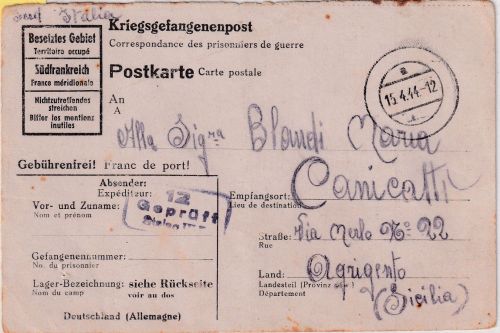 Italia
Kriegsgefangenenpost
Correspondance des prisonniers de guerre
Besetztes Gebiet
Territoire occupé
Südfrankreich
France méridionale
Nichtzutreffendes
streichen
Biffer les mentions
inutiles
Postkarte Carte postale
15.4.44.-12
An
A
Alla Sigra Blandi Maria
Gebührenfrei! Franc de port!
Absender:
Expéditeur:
12
Geprüft
Vor- und Zuname:
Nom et prénom
Empfangsort: Canicatti
Lieu de destination
Straße: Via Merlo No 22
Rue
Gefangenennummer:
No. du prisonnier
Land: Agrigento
Landesteil (Provinz usw.)
Département
(Sicilia)
Lager-Bezeichnung: siehe Rückseite
Nom du camp voir au dos
Deutschland (Allemagne)